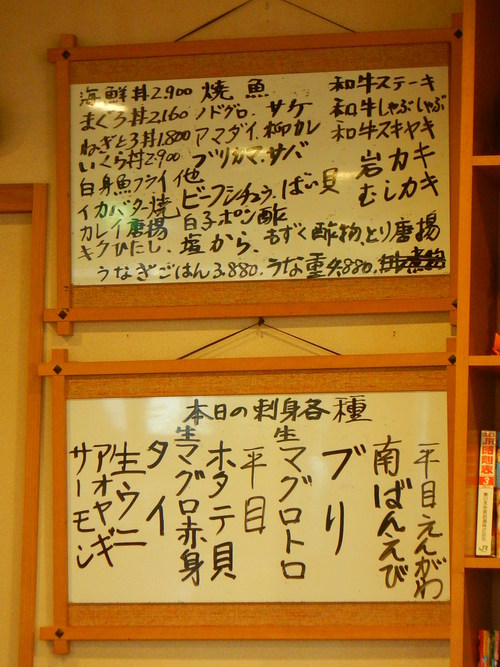 海鮮丼2,900 焼魚 和牛ステーキ
まぐろ丼2,160 ノドグロ、サケ 和牛しゃぶしゃぶ
ねぎとろ丼1,800 アマダイ、柳カレ 和牛スキヤキ
いくら丼2,900 ブリカマ、サバ 岩カキ
白身魚フライ他 むしカキ
イカバター焼 ビーフシチュウ、ばい貝
カレイ唐揚 白子ポン酢
キクひたし、塩から、もずく酢物、とり唐揚
うなぎごはん3,880、うな重4,880、
本日の刺身各種
平目えんがわ
南ばんえび
ブリ
生マグロトロ
平目
ホタテ貝
生マグロ赤身
タイ
生ウニ
アオヤギ
サーモン
JR